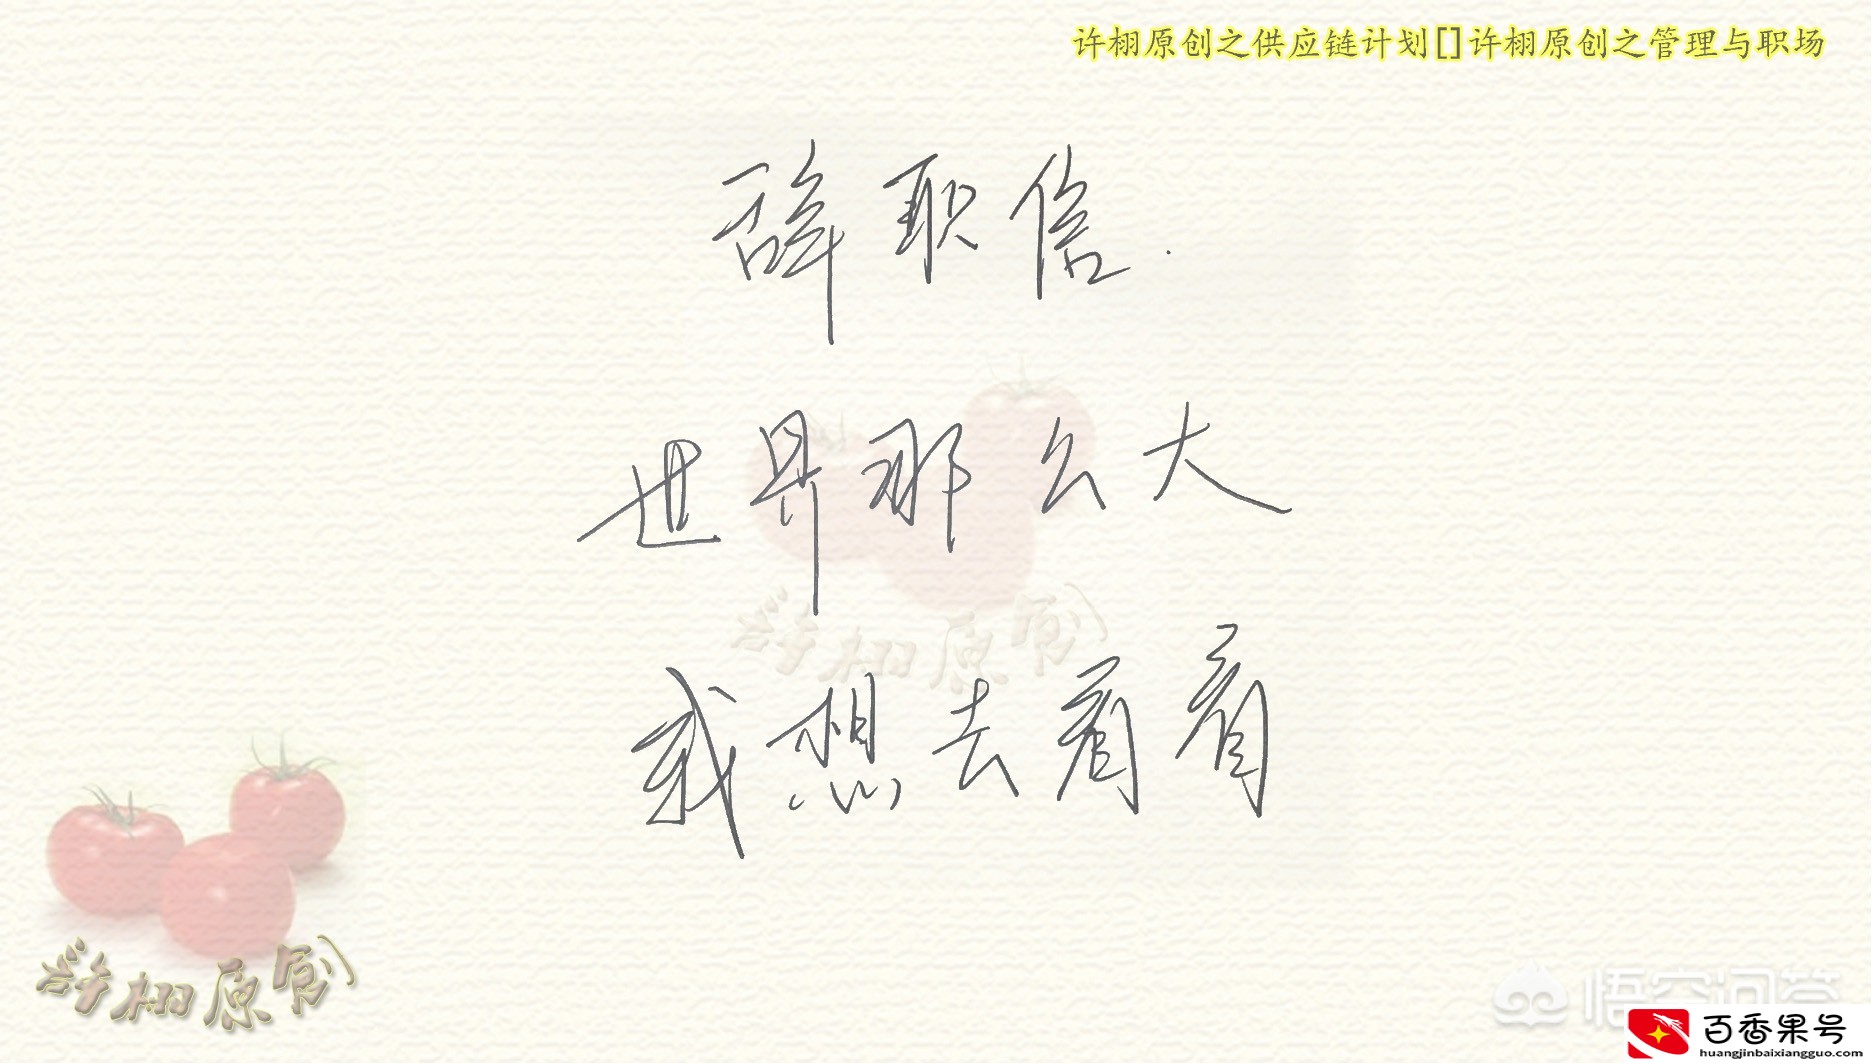 许栩原创之供应链计划[]许栩原创之管理与职场
辞职信.
世界那么大
许栩原创
我想去看看
许栩原创
悟空问答
百香果号
huangjinbaixiangguo.com